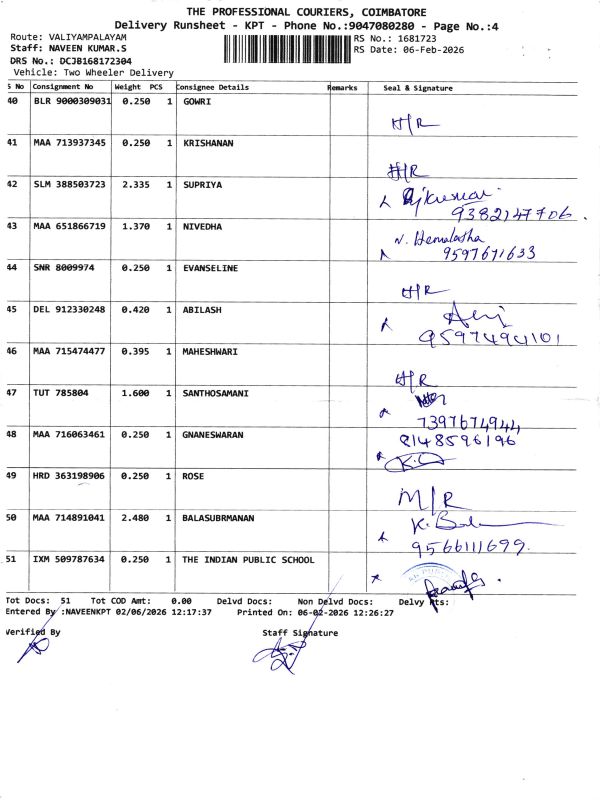 THE PROFESSIONAL COURIERS, COIMBATORE
Delivery Runsheet - KPT - Phone No.:9047080280 - Page No.:4
Route: VALIYAMPALAYAM RS No.: 1681723
Staff: NAVEEN KUMAR.S RS Date: 06-Feb-2026
DRS No.: DCJB168172304
Vehicle: Two Wheeler Delivery
S No Consignment No Weight PCS Consignee Details Remarks Seal & Signature
40 BLR 9000309031 0.250 1 GOWRI
H/R
41 MAA 713937345 0.250 1 KRISHANAN
H/R
42 SLM 388503723 2.335 1 SUPRIYA
9382147706
43 MAA 651866719 1.370 1 NIVEDHA
N. Hemalatha
9597671633
44 SNR 8009974 0.250 1 EVANSELINE
H/R
45 DEL 912330248 0.420 1 ABILASH
9597494101
46 MAA 715474477 0.395 1 MAHESHWARI
H/R
47 TUT 785804 1.600 1 SANTHOSAMANI
7397674944
48 MAA 716063461 0.250 1 GNANESWARAN
8148596196
49 HRD 363198906 0.250 1 ROSE
M/R
50 MAA 714891041 2.480 1 BALASUBRMANAN
9566111699
51 IXM 509787634 0.250 1 THE INDIAN PUBLIC SCHOOL
Tot Docs: 51 Tot COD Amt: 0.00 Delvd Docs: Non Delvd Docs: Delvy Rts:
Entered By :NAVEENKPT 02/06/2026 12:17:37 Printed On: 06-02-2026 12:26:27
Verified By Staff Signature